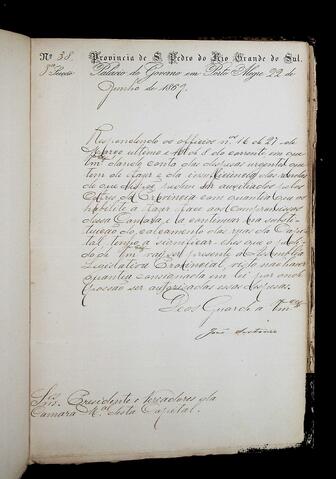 Nº 38. Provincia de S. Pedro do Rio Grande do Sul.
Palacio do Governo em Porto Alegre 22 de
Junho de 1867.
Respondendo os officios nos 16 de 27 de
Março ultimo e de 8 do corrente em que
Vmces dando conta das despesas urgentes que
tem de fazer e da insufficiencia das rendas
de que dispoe pedem ser auxiliados pelos
Cofres da Provincia com quantia que os
habilite a fazer face aos compromissos
dessa Camara, e a continuar na substi-
tuição do calçamento das ruas da Capi-
tal, tenho a significar-lhes que o pedi-
do de Vmces vai ser presente á Assemblea
Legislativa Provincial visto não haver
quantia consignada em lei por onde
possão ser autorisadas essas despesas.
Deos Guarde a Vmces
Snrs. Presidente e Vereadores da
Camara Mal desta Capital.